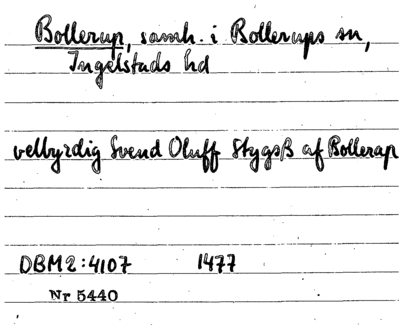 Bollerup, samh. i Bollerups sn,
Ingelstads hd
velbyrdig Svend Oluff Stygsß af Bollerap
DBM2:4107 1477
Nr 5440